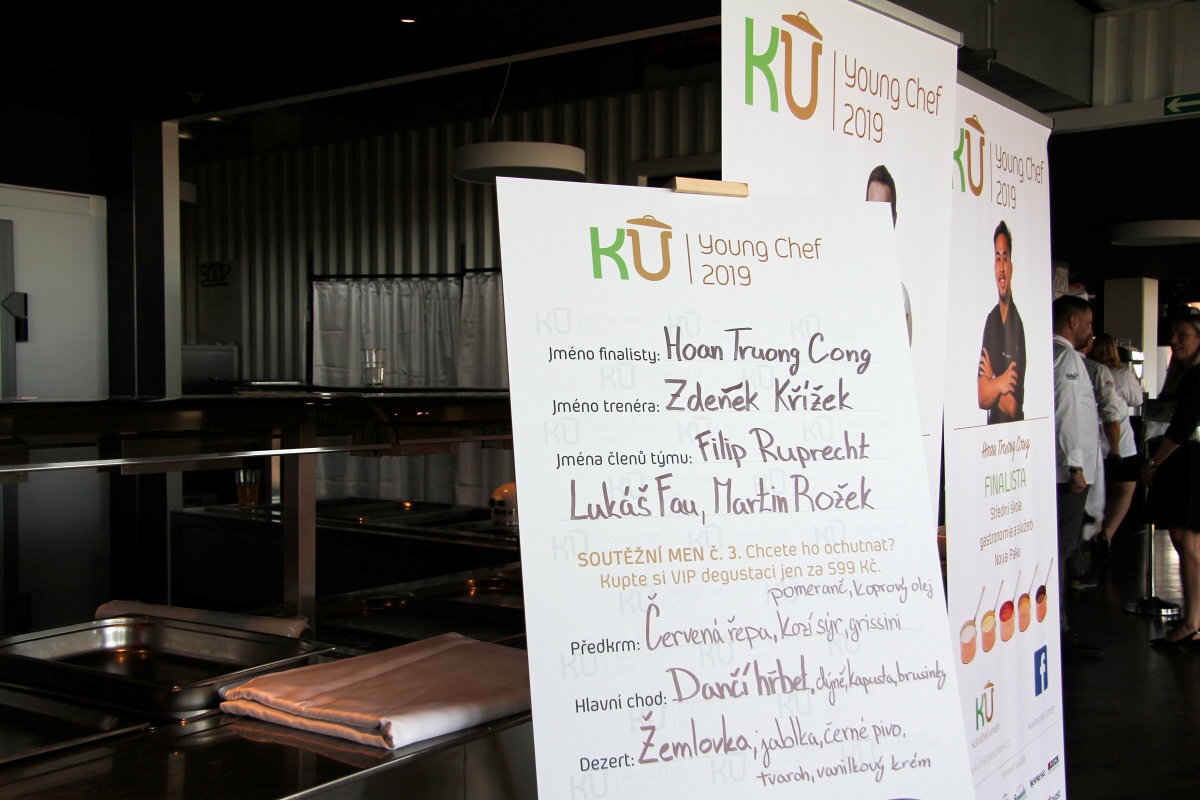 KÚ Young Chef
2019
Jméno finalisty: Hoan Truong Cong
Jméno trenéra: Zdeněk Křížek
Jména členů týmu: Filip Ruprecht
Lukáš Fau, Martin Rožek
SOUTĚŽNÍ MEN č. 3. Chcete ho ochutnat?
Kupte si VIP degustaci jen za 599 Kč.
pomeranč, koprový olej
Předkrm: Červená řepa, kozí sýr, grissini
Hlavní chod: Dančí hřbet, dýně, kapusta, brusinky
Dezert: Žemlovka, jablka, černé pivo,
tvaroh, vanilkový krém
KÚ Young Chef
2019
KÚ Young Chef
2019
Hoan Truong Cong
FINALISTA
Střední škola
gastronomie a služeb
Nová Paka
KÚ
f